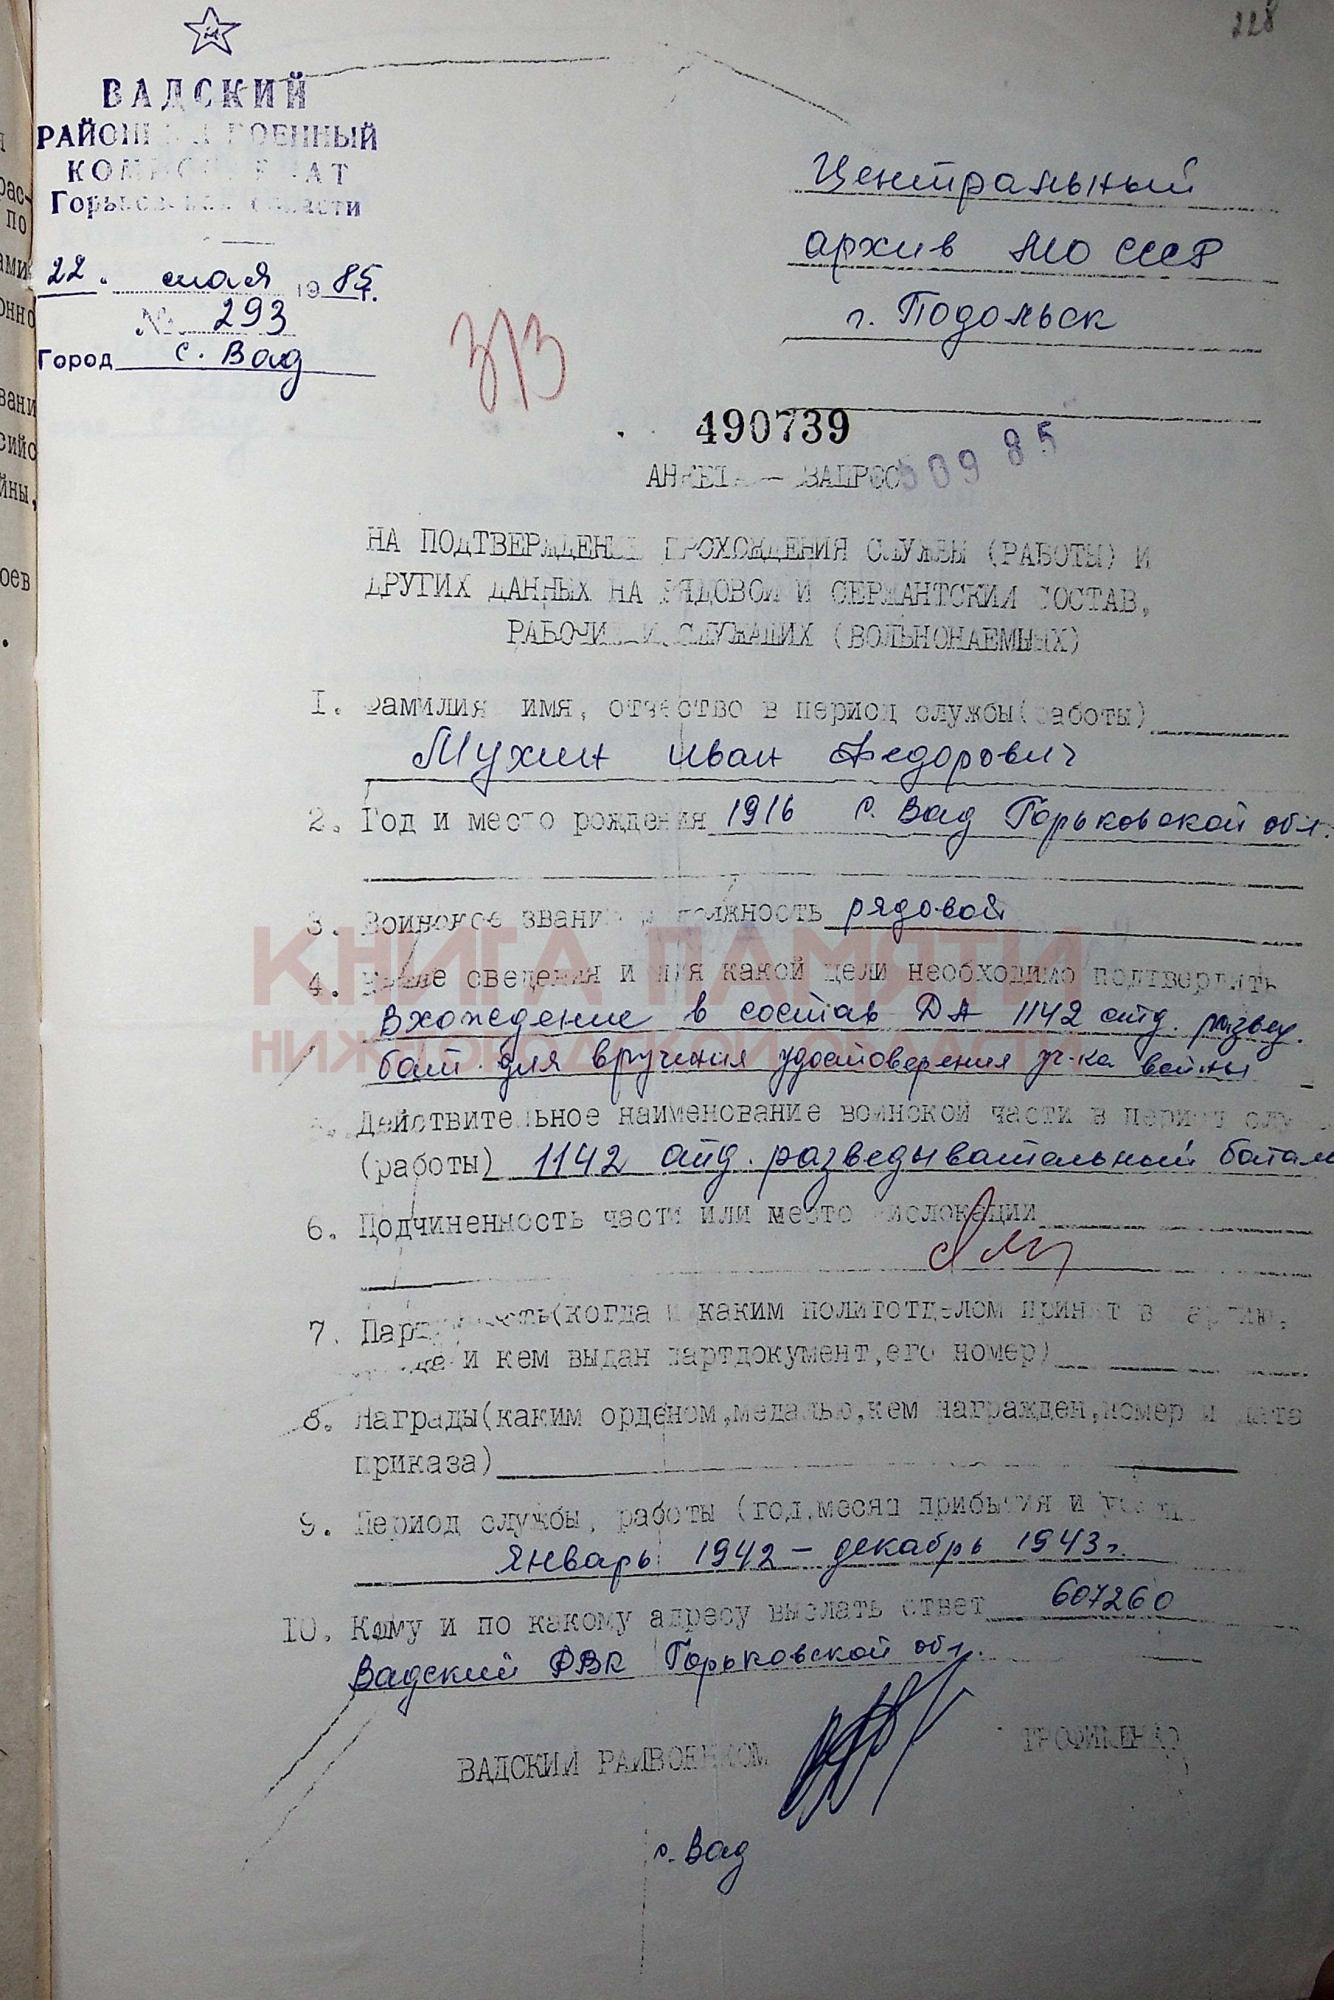 228
ВАДСКИЙ
РАЙОННЫЙ ВОЕННЫЙ
КОМИССАРИАТ
Горьковской области
22. мая 1985 г.
№ 293
Город с. Вад
Центральный
архив МО СССР
г. Подольск
490739
АНКЕТА — ЗАПРОС
09 85
НА ПОДТВЕРЖДЕНИЕ ПРОХОЖДЕНИЯ СЛУЖБЫ (РАБОТЫ) И
ДРУГИХ ДАННЫХ НА РЯДОВОЙ И СЕРЖАНТСКИЙ СОСТАВ,
РАБОЧИХ И СЛУЖАЩИХ (ВОЛЬНОНАЕМНЫХ)
1. Фамилия имя, отчество в период службы(работы)
Мухин Иван Федорович
2. Год и место рождения 1916 с. Вад Горьковской обл.
3. Воинское звание и должность рядовой
КНИГА ПАМЯТИ
4. Какие сведения и для какой цели необходимо подтвердить
Вхождение в состав ДА 1142 отд. развед.
НИЖЕГОРОДСКОЙ ОБЛАСТИ
бат. для вручения удостоверения уч-ка войны
5. Действительное наименование воинской части в период слу
(работы) 1142 отд. разведывательный батал
6. Подчиненность части или место дислокации
7. Партийность(когда и каким политотделом принят в партию,
и кем выдан партдокумент,его номер)
8. Награды(каким орденом,медалью,кем награжден,номер и дата
приказа)
9. Период службы, работы (год,месяц прибытия и
Январь 1942 – декабрь 1943 г.
10. Кому и по какому адресу выслать ответ 607260
Вадский РВК Горьковской обл.
ВАДСКИЙ РАЙВОЕНКОМ ТРОФИМЕНКО
с. Вад
рас-
по
ами
онно
вани
сийс
йны,
оев